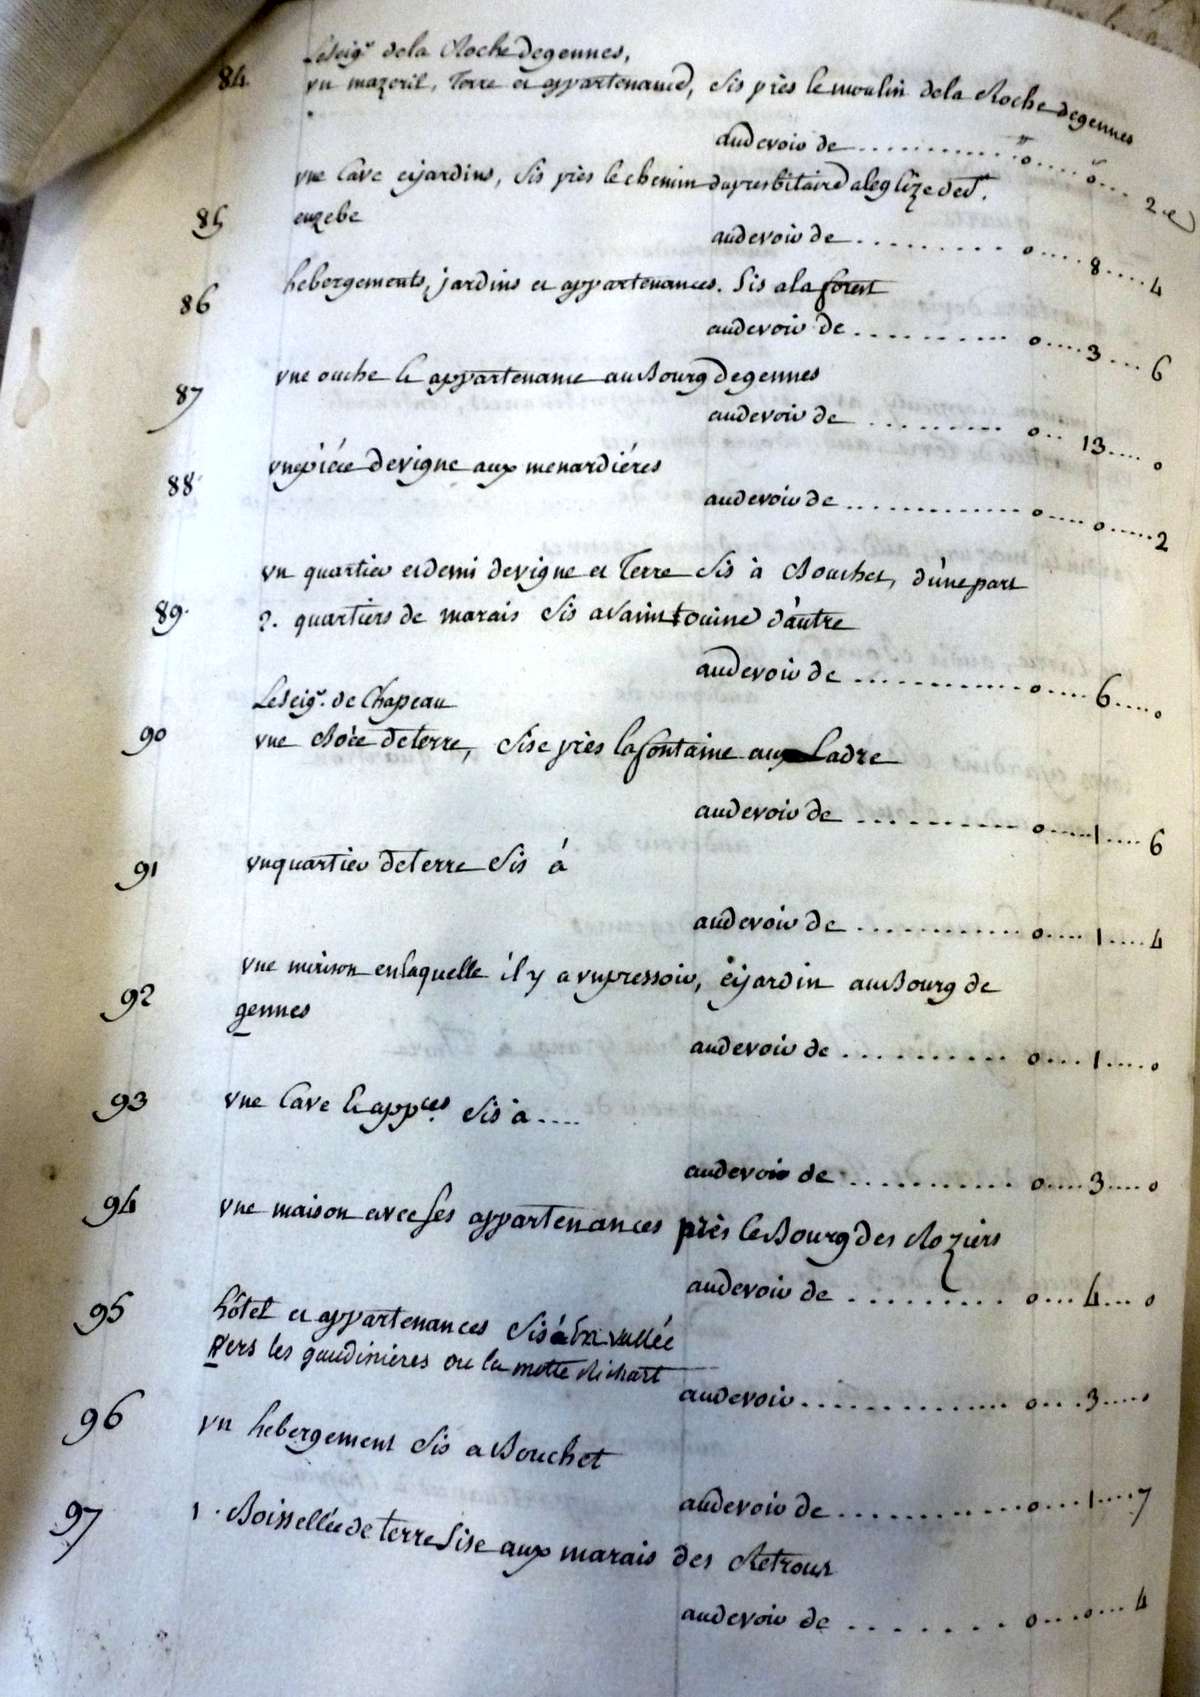 Le Seigr. dela Roche degennes,
84. vn mazeril, Terre et appartenances, sis près le moulin dela Roche degennes
audevoir de ............ o.... o.... 2.
vne Cave et jardins, sis près le chemin du presbitaire a leglize de St.
85 euzebe
audevoir de ............ o.... 8.... 4
86 hebergements, jardins et appartenances. Sis a la forest
audevoir de ............ o.... 3.... 6
87 vne ouche & appartenance au Bourg degennes
audevoir de ............ o.. 13.... o
88 vne piéce de vigne aux menardiéres
audevoir de ............ o.... o.... 2
vn quartier et demi de vigne et Terre sis à Bouchet, d'une part
89. 2. quartiers de marais sis a d'autre
audevoir de ............ o.... 6.... o
Le seigr. de Chapeau
90 vne Boëe de terre, sise près la fontaine aux Ladre
audevoir de ............ o.... 1.... 6
91 vn quartier de terre sis á
audevoir de ............ o.... 1.... 4
vne maison en laquelle il y a vn pressoir, et jardin au Bourg de
92 gennes
audevoir de ............ o.... 1.... o
93 vne Cave & appces. sis a ....
audevoir de ............ o.... 3.... o
94 vne maison avec ses appartenances près le Bourg des Roziers
audevoir de ............ o.... 4... o
95 hôtel et appartenances sis á la vallée
vers les gaudinières ou la motte Richart
audevoir ............ o... 3.... o
96 vn hebergement sis a Bouchet
audevoir de ............ o... 1.... 7
97 1. Boissellée de terre sise aux marais des Retrous
audevoir de ............ o... o... 4